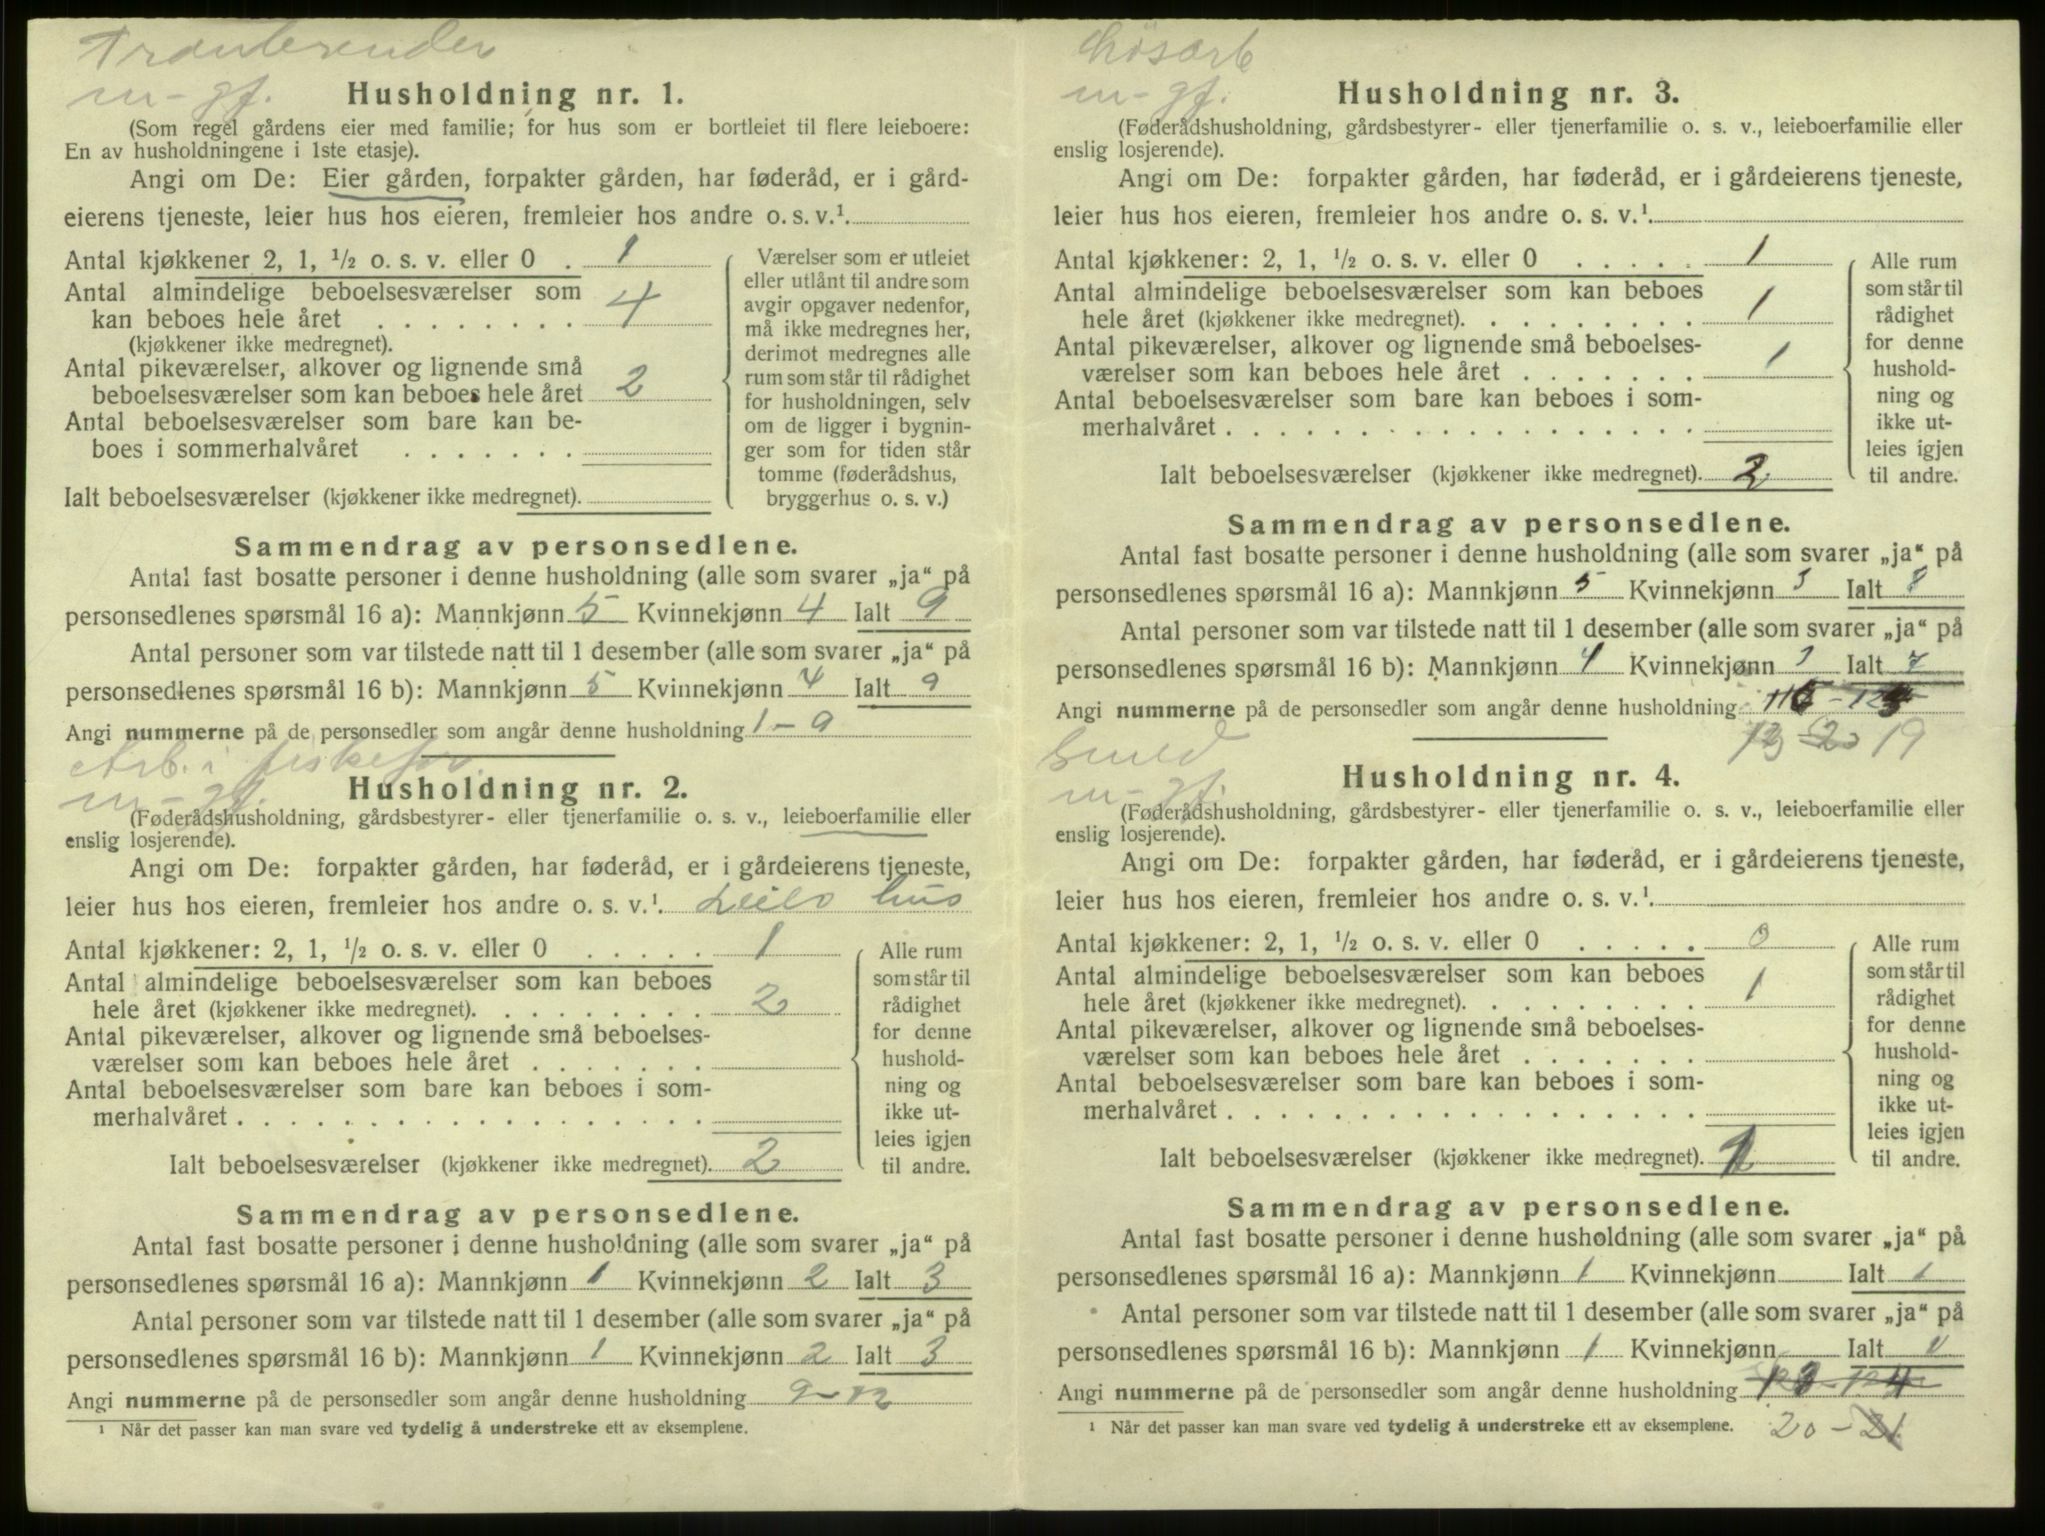 m-gf.
Husholdning nr. 1.
(Som regel gårdens eier med familie; for hus som er bortleiet til flere leieboere:
En av husholdningene i 1ste etasje).
Angi om De: Eier gården, forpakter gården, har føderåd, er i gård-
eierens tjeneste, leier hus hos eieren, fremleier hos andre o. s. v.¹.
Antal kjøkkener 2, 1, ½ o. s. v. eller 0 . 1
Antal almindelige beboelsesværelser som
kan beboes hele året . . . . . . . . 4
(kjøkkener ikke medregnet).
Antal pikeværelser, alkover og lignende små
beboelsesværelser som kan beboes hele året 2
Antal beboelsesværelser som bare kan be-
boes i sommerhalvåret . . . . . . .
Ialt beboelsesværelser (kjøkkener ikke medregnet).
Værelser som er utleiet
eller utlånt til andre som
avgir opgaver nedenfor,
må ikke medregnes her,
derimot medregnes alle
rum som står til rådighet
for husholdningen, selv
om de ligger i bygnin-
ger som for tiden står
tomme (føderådshus,
bryggerhus o. s. v.)
Sammendrag av personsedlene.
Antal fast bosatte personer i denne husholdning (alle som svarer „ja“ på
personsedlenes spørsmål 16 a): Mannkjønn 5 Kvinnekjønn 4 Ialt 9
Antal personer som var tilstede natt til 1 desember (alle som svarer „ja“ på
personsedlenes spørsmål 16 b): Mannkjønn 5 Kvinnekjønn 4 Ialt 9
Angi nummerne på de personsedler som angår denne husholdning 1-9
Arb. i
m-gf.
Husholdning nr. 2.
(Føderådshusholdning, gårdsbestyrer- eller tjenerfamilie o. s. v., leieboerfamilie eller
enslig losjerende).
Angi om De: forpakter gården, har føderåd, er i gårdeierens tjeneste,
leier hus hos eieren, fremleier hos andre o. s. v.¹. hus
Antal kjøkkener: 2, 1, ½ o. s. v. eller 0 . . . . . 1
Antal almindelige beboelsesværelser som kan beboes
hele året (kjøkkener ikke medregnet). . . . . . . . . 2
Antal pikeværelser, alkover og lignende små beboelses-
værelser som kan beboes hele året . . . . . . .
Antal beboelsesværelser som bare kan beboes i som-
merhalvåret . . . . . . . . . . . . . . . . . .
Ialt beboelsesværelser (kjøkkener ikke medregnet). 2
Alle rum
som står til
rådighet
for denne
hushold-
ning og
ikke ut-
leies igjen
til andre.
Sammendrag av personsedlene.
Antal fast bosatte personer i denne husholdning (alle som svarer „ja“ på
personsedlenes spørsmål 16 a): Mannkjønn 1 Kvinnekjønn 2 Ialt 3
Antal personer som var tilstede natt til 1 desember (alle som svarer „ja“ på
personsedlenes spørsmål 16 b): Mannkjønn 1 Kvinnekjønn 2 Ialt 3
Angi nummerne på de personsedler som angår denne husholdning 9-12
¹ Når det passer kan man svare ved tydelig å understreke ett av eksemplene.
m-gf.
Husholdning nr. 3.
(Føderådshusholdning, gårdsbestyrer- eller tjenerfamilie o. s. v., leieboerfamilie eller
enslig losjerende).
Angi om De: forpakter gården, har føderåd, er i gårdeierens tjeneste,
leier hus hos eieren, fremleier hos andre o. s. v.¹.
Antal kjøkkener: 2, 1, ½ o. s. v. eller 0 . . . . . 1
Antal almindelige beboelsesværelser som kan beboes
hele året (kjøkkener ikke medregnet). . . . . . . . . 1
Antal pikeværelser, alkover og lignende små beboelses-
værelser som kan beboes hele året . . . . . . . 1
Antal beboelsesværelser som bare kan beboes i som-
merhalvåret . . . . . . . . . . . . . . . . . .
Ialt beboelsesværelser (kjøkkener ikke medregnet). 2
Alle rum
som står til
rådighet
for denne
hushold-
ning og
ikke ut-
leies igjen
til andre.
Sammendrag av personsedlene.
Antal fast bosatte personer i denne husholdning (alle som svarer „ja“ på
personsedlenes spørsmål 16 a): Mannkjønn 5 Kvinnekjønn 3 Ialt 8
Antal personer som var tilstede natt til 1 desember (alle som svarer „ja“ på
personsedlenes spørsmål 16 b): Mannkjønn 4 Kvinnekjønn 3 Ialt 7
Angi nummerne på de personsedler som angår denne husholdning
19
Smed
m-gf.
Husholdning nr. 4.
(Føderådshusholdning, gårdsbestyrer- eller tjenerfamilie o. s. v., leieboerfamilie eller
enslig losjerende).
Angi om De: forpakter gården, har føderåd, er i gårdeierens tjeneste,
leier hus hos eieren, fremleier hos andre o. s. v.¹.
Antal kjøkkener: 2, 1, ½ o. s. v. eller 0 . . . . . 0
Antal almindelige beboelsesværelser som kan beboes
hele året (kjøkkener ikke medregnet). . . . . . . . . 1
Antal pikeværelser, alkover og lignende små beboelses-
værelser som kan beboes hele året . . . . . . .
Antal beboelsesværelser som bare kan beboes i som-
merhalvåret . . . . . . . . . . . . . . . . . .
Ialt beboelsesværelser (kjøkkener ikke medregnet). 1
Alle rum
som står til
rådighet
for denne
hushold-
ning og
ikke ut-
leies igjen
til andre.
Sammendrag av personsedlene.
Antal fast bosatte personer i denne husholdning (alle som svarer „ja“ på
personsedlenes spørsmål 16 a): Mannkjønn 1 Kvinnekjønn Ialt 1
Antal personer som var tilstede natt til 1 desember (alle som svarer „ja“ på
personsedlenes spørsmål 16 b): Mannkjønn 1 Kvinnekjønn Ialt
Angi nummerne på de personsedler som angår denne husholdning
¹ Når det passer kan man svare ved tydelig å understreke ett av eksemplene. 20-21